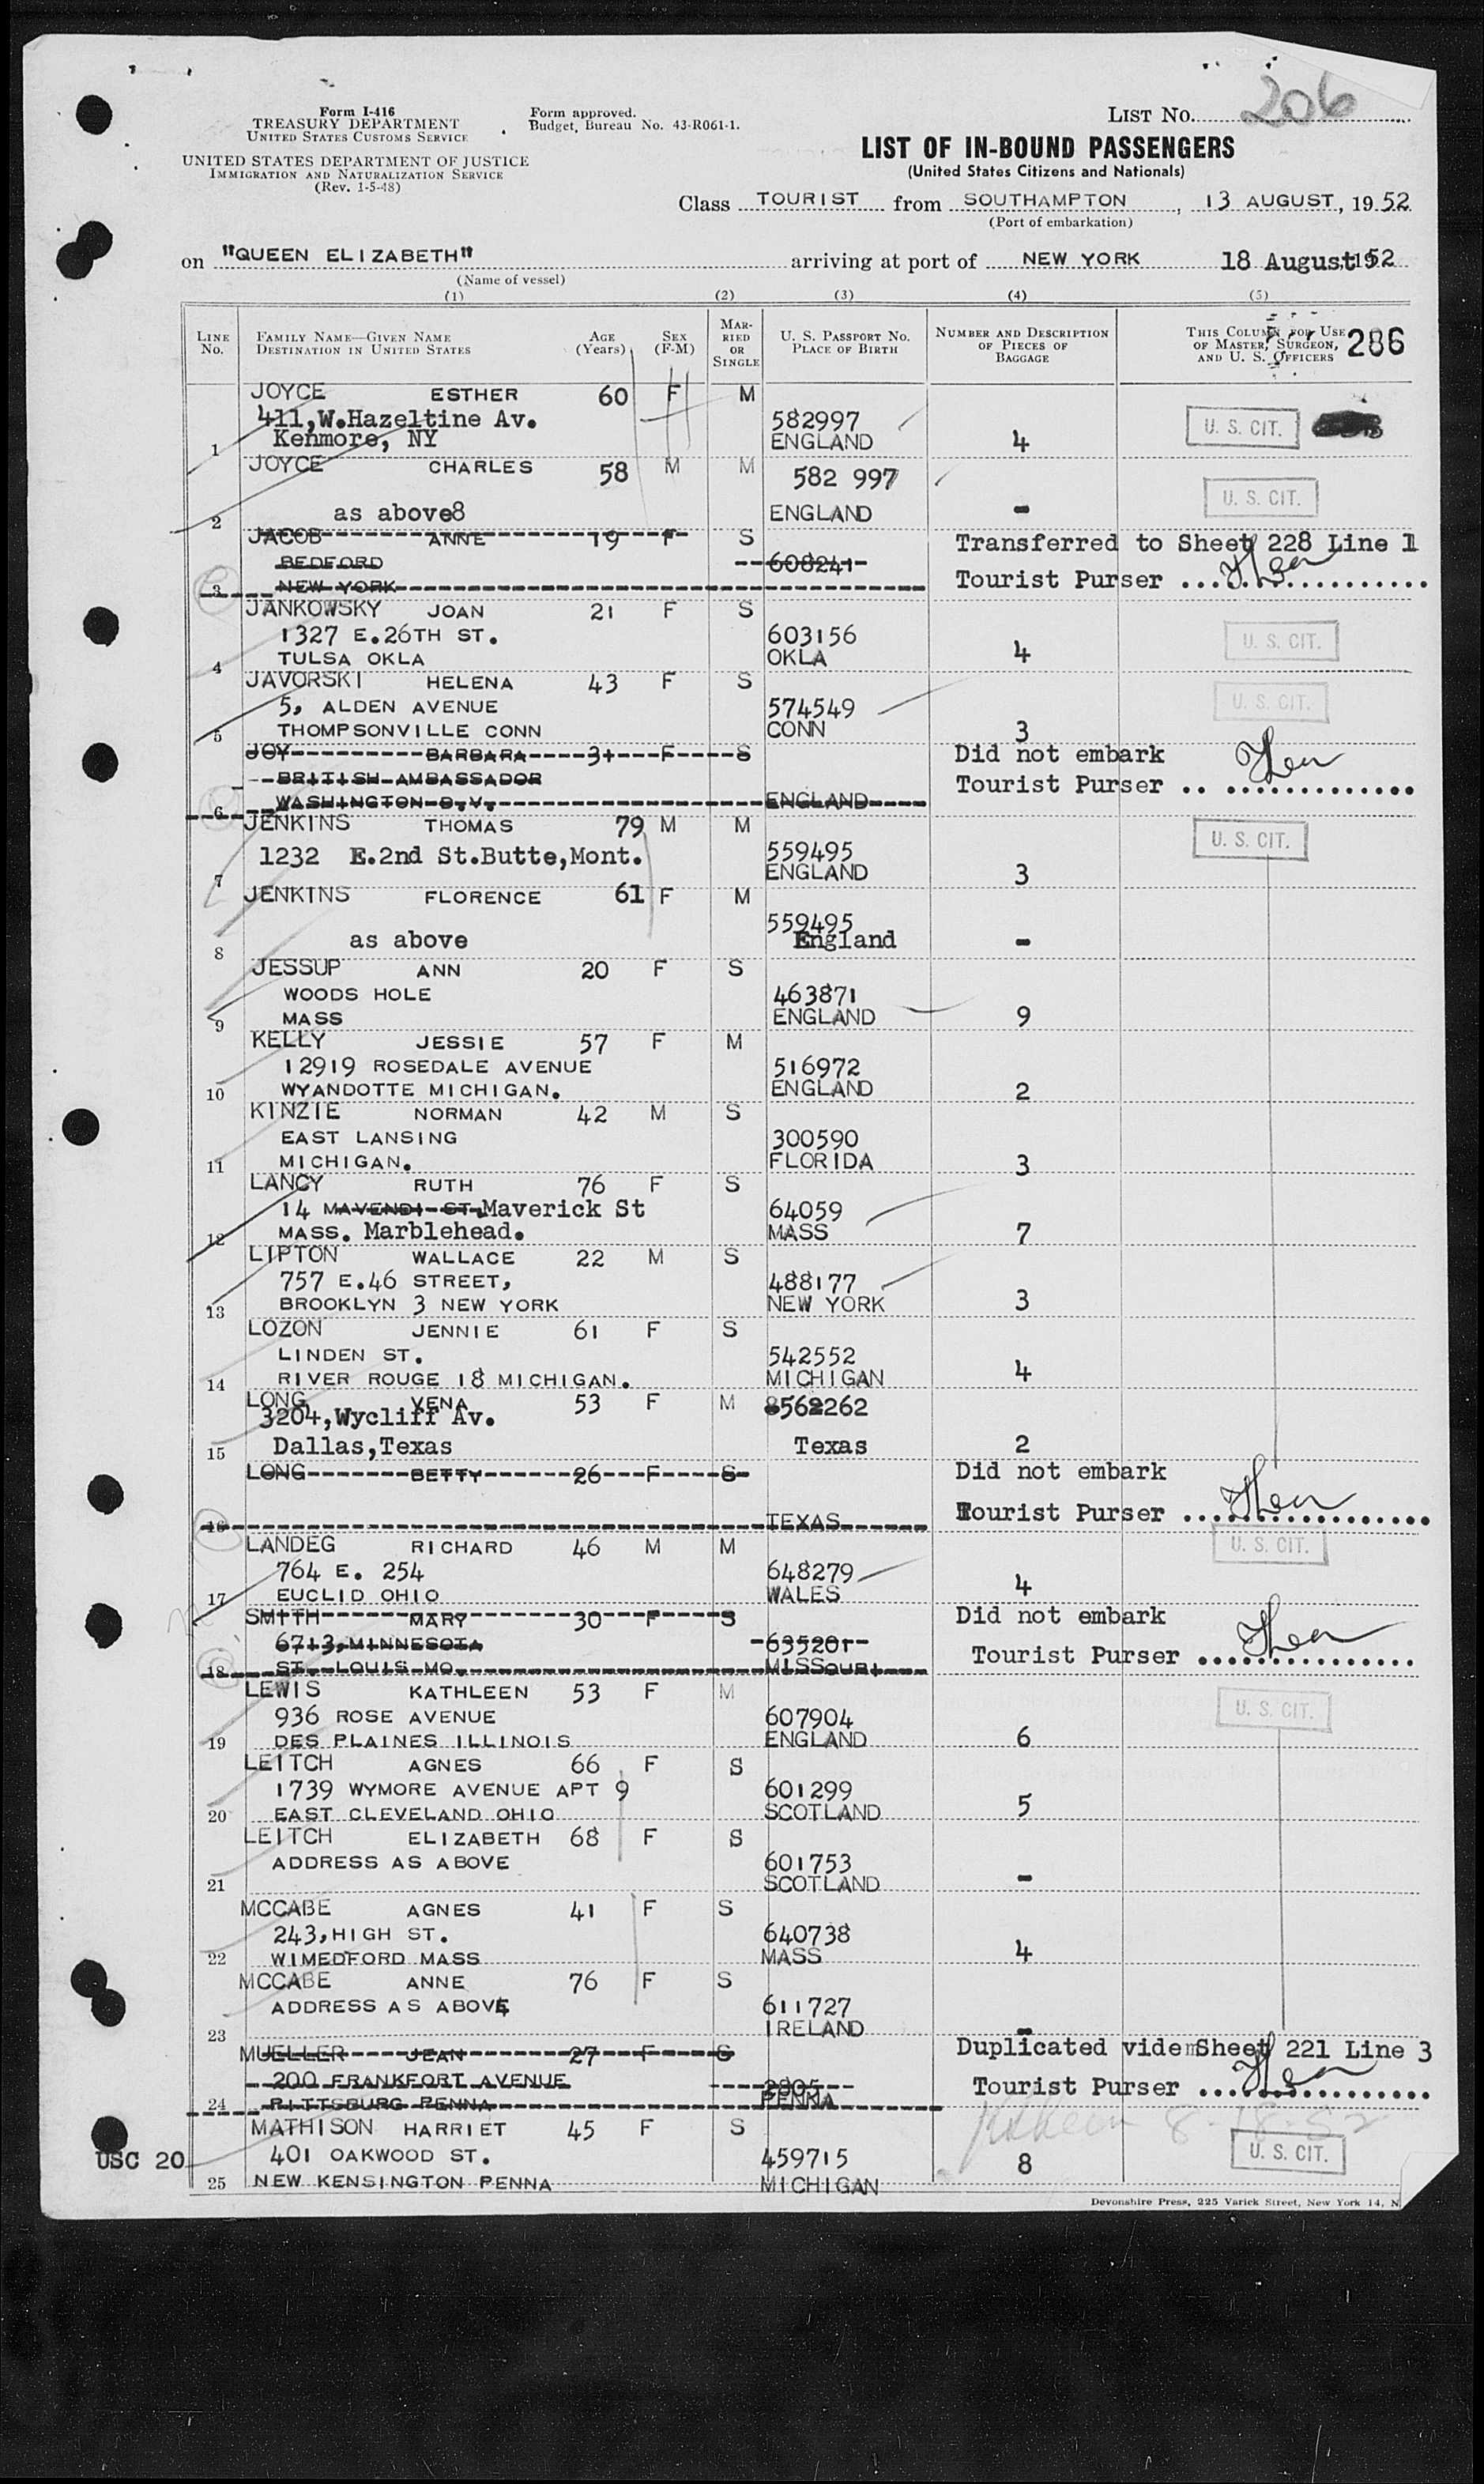 Form I-416
TREASURY DEPARTMENT
UNITED STATES CUSTOMS SERVICE
UNITED STATES DEPARTMENT OF JUSTICE
IMMIGRATION AND NATURALIZATION SERVICE
(Rev. 1-5-48)
Form approved.
Budget, Bureau No. 43-R061-1.
LIST NO. 206
LIST OF IN-BOUND PASSENGERS
(United States Citizens and Nationals)
Class TOURIST from SOUTHAMPTON, 13 AUGUST, 1952
(Port of embarkation)
on "QUEEN ELIZABETH" arriving at port of NEW YORK 18 August 1952
(Name of vessel)
(1) (2) (3) (4) (5)
LINE No. FAMILY NAME—GIVEN NAME DESTINATION IN UNITED STATES AGE (Years) SEX (F-M) MARRIED OR SINGLE U. S. PASSPORT NO. PLACE OF BIRTH NUMBER AND DESCRIPTION OF PIECES OF BAGGAGE THIS COLUMN FOR USE OF MASTER, SURGEON, AND U. S. OFFICERS 286
JOYCE ESTHER 60 F M
411,W.Hazeltine Av. 582997 U. S. CIT.
1 Kenmore, NY ENGLAND 4
JOYCE CHARLES 58 M M 582 997
2 as above8 ENGLAND - U. S. CIT.
JACOB ANNE 19 F S Transferred to Sheet 228 Line 1
BEDFORD 608241
3 NEW YORK Tourist Purser
JANKOWSKY JOAN 21 F S
1327 E.26TH ST. 603156 U. S. CIT.
4 TULSA OKLA OKLA 4
JAVORSKI HELENA 43 F S
5, ALDEN AVENUE 574549 U. S. CIT.
5 THOMPSONVILLE CONN CONN 3
JOY BARBARA 31 F S Did not embark
BRITISH AMBASSADOR Tourist Purser
6 WASHINGTON D.V. ENGLAND
JENKINS THOMAS 79 M M U. S. CIT.
1232 E.2nd St.Butte,Mont. 559495
7 ENGLAND 3
JENKINS FLORENCE 61 F M
559495
8 as above England -
JESSUP ANN 20 F S
WOODS HOLE 463871
9 MASS ENGLAND 9
KELLY JESSIE 57 F M
12919 ROSEDALE AVENUE 516972
10 WYANDOTTE MICHIGAN. ENGLAND 2
KINZIE NORMAN 42 M S
EAST LANSING 300590
11 MICHIGAN. FLORIDA 3
LANCY RUTH 76 F S
14 MAVENDI ST. Maverick St 64059
12 MASS. Marblehead. MASS 7
LIPTON WALLACE 22 M S
757 E.46 STREET, 488177
13 BROOKLYN 3 NEW YORK NEW YORK 3
LOZON JENNIE 61 F S
LINDEN ST. 542552
14 RIVER ROUGE 18 MICHIGAN. MICHIGAN 4
LONG VENA 53 F M 8562262
3204,Wycliff Av.
15 Dallas,Texas Texas 2
LONG BETTY 26 F S Did not embark
16 TEXAS Tourist Purser
LANDEG RICHARD 46 M M U. S. CIT.
764 E. 254 648279
17 EUCLID OHIO WALES 4
SMITH MARY 30 F S Did not embark
6713,MINNESOTA 635201
18 ST. LOUIS MO. MISSOURI Tourist Purser
LEWIS KATHLEEN 53 F M
936 ROSE AVENUE 607904 U. S. CIT.
19 DES PLAINES ILLINOIS ENGLAND 6
LEITCH AGNES 66 F S
1739 WYMORE AVENUE APT 9 601299
20 EAST CLEVELAND OHIO SCOTLAND 5
LEITCH ELIZABETH 68 F S
ADDRESS AS ABOVE 601753
21 SCOTLAND -
MCCABE AGNES 41 F S
243,HIGH ST. 640738
22 WIMEDFORD MASS MASS 4
MCCABE ANNE 76 F S
ADDRESS AS ABOVE 611727
23 IRELAND -
MUELLER JEAN 27 F S Duplicated vide Sheet 221 Line 3
200 FRANKFORT AVENUE 2805
24 PITTSBURG PENNA PENNA Tourist Purser
MATHISON HARRIET 45 F S 8-18-52
USC 20 401 OAKWOOD ST. 459715 U. S. CIT.
25 NEW KENSINGTON PENNA MICHIGAN 8
Devonshire Press, 225 Varick Street, New York 14, N